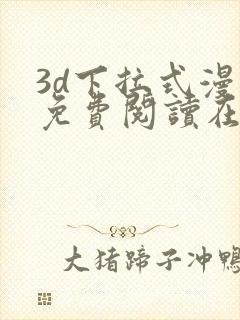 3d下拉式漫
免費閱讀在
大猪蹄子冲鸭